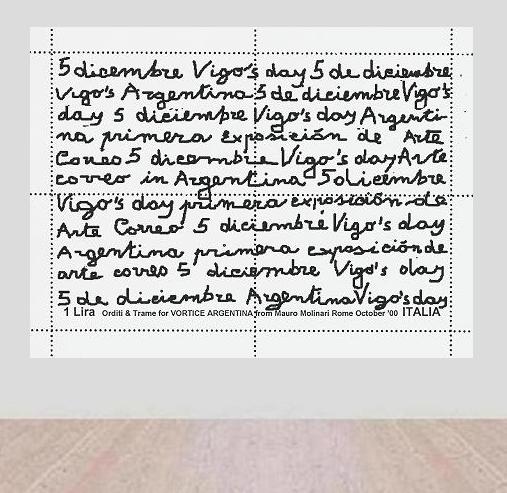 5 dicembre Vigo's day 5 de diciembre
Vigo's Argentina 5 de diciembre Vigo's
day 5 diciembre Vigo's day Argenti-
na primera exposición de Arte
Correo 5 dicembre Vigo's day Arte
correo in Argentina 5 diciembre
Vigo's day primera exposición da
Arte Correo 5 diciembre Vigo's day
Argentina primera exposición de
arte correo 5 diciembre Vigo's day
5 de diciembre Argentina Vigo's day
1 Lira Orditi & Trame for VORTICE ARGENTINA from Mauro Molinari Rome October '00 ITALIA